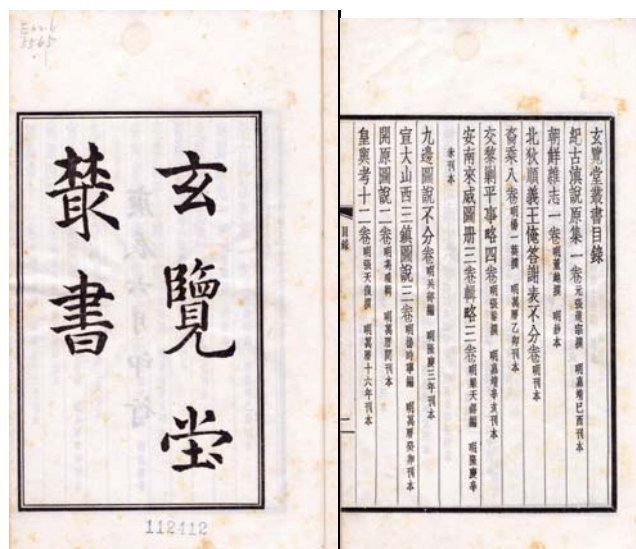 玄覽堂
叢書
112412
玄覽堂叢書目錄
紀古滇說原集一卷 元張道宗撰 明嘉靖己酉刊本
朝鮮雜志一卷 明董越撰 明鈔本
北狄順義王俺答謝表不分卷 明刊本
裔乘八卷 明楊一葵撰 明萬曆乙卯刊本
交黎剿平事略四卷 明張鏊撰 明嘉靖辛亥刊本
安南來威圖冊三卷輯略三卷 明梁天錫編 明隆慶辛
未刊本
九邊圖說不分卷 明兵部編 明隆慶三年刊本
宣大山西三鎮圖說三卷 明楊時寧編 明萬曆癸卯刊本
開原圖說二卷 明馮瑗輯 明萬曆間刊本
皇輿考十二卷 明張天復撰 明萬曆十六年刊本
目錄
一